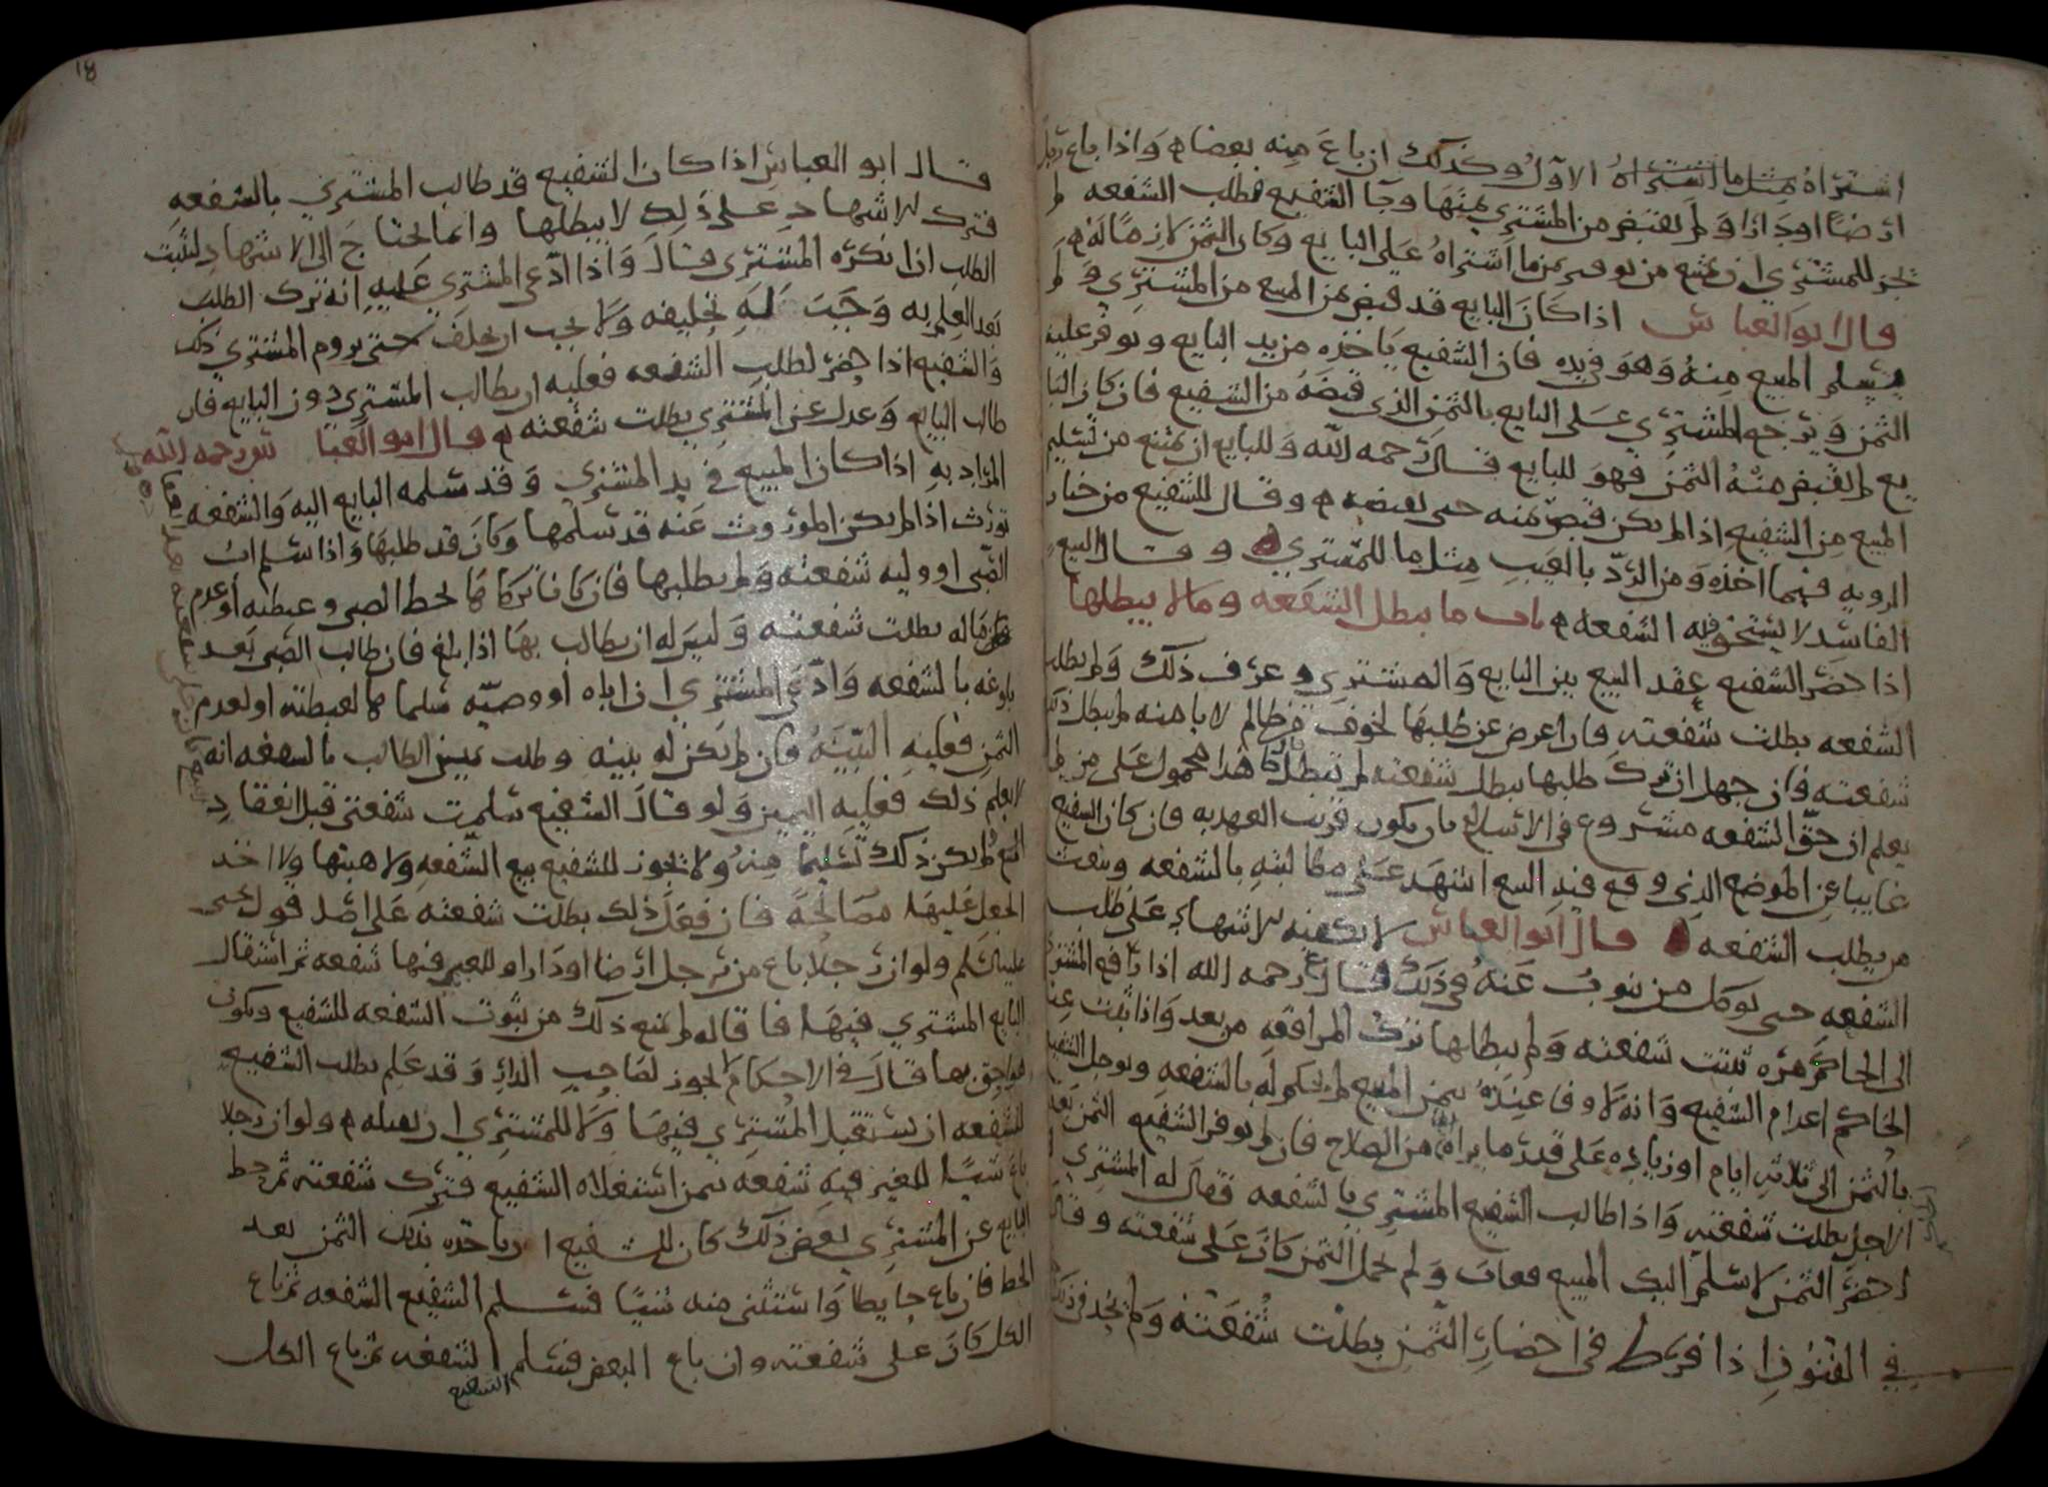 اشتراه مثل ما اشتراه الاول وكذلك ان باع منه بعضا واذا باع رجل
ارضا او دارا ولم يقبض من المشتري ثمنها وجا الشفيع فطلب الشفعه لم
يجز للمشتري ان يمتنع من توفير ثمن ما اشتراه على البايع وكان الثمن لازما له
قال ابو العباس اذا كان البايع قد قبض ثمن المبيع من المشتري ولم
يسلم المبيع منه وهو في يده فان الشفيع ياخذه من يد البايع ويوفر عليه
الثمن ويرجع المشتري على البايع بالثمن الذي قبضه من الشفيع فان كان البا
يع لم يقبض منه الثمن فهو للبايع قال رحمه الله وللبايع ان يمتنع من تسليم
المبيع من الشفيع اذا لم يكن قبض ثمنه حتى يقبضه وقال للشفيع من خيار
الرويه فيما اخذه ومن الرد بالعيب مثل ما للمشتري وقال البيع
الفاسد لا يستحق فيه الشفعه باب ما يبطل الشفعه وما لا يبطلها
اذا حضر الشفيع عقد البيع بين البايع والمشتري وعرف ذلك ولم يطلب
الشفعه بطلت شفعته فان اعرض عن طلبها لخوف من ظالم لا يامنه لم يبطل ذلك
شفعته فان جهل ان ترك طلبها يبطل شفعته لم تبطل هذا محمول على من لم
يعلم ان حق الشفعه مشروع في الاسلام بان يكون قريب العهد به فان كان الشفيع
غايبا عن الموضع الذي وقع فيه البيع اشهد على مطالبته بالشفعه وبعث
من يطلب الشفعه قال ابو العباس لا يكفيه الاشهاد على طلب
الشفعه حتى يوكل من ينوب عنه في ذلك قال رحمه الله اذا رافع المشتري
الى الحاكم مره ثبتت شفعته ولم يبطلها ترك المرافعه من بعد واذا ثبت عند
الحاكم اعدام الشفيع وانه لا وفا عنده بثمن المبيع لم يحكم له بالشفعه ويوجل الشفيع
بالثمن الى ثلاثه ايام او زياده على قدر ما يراه من الصلاح فان لم يوفر الشفيع الثمن بعد
الاجل بطلت شفعته واذا طالب الشفيع المشتري بالشفعه فقال له المشتري
احضر الثمن لاسلم اليك المبيع فغاب ولم يحمل الثمن كان على شفعته وقال
في الفنون اذا فرط في احضار الثمن بطلت شفعته ولم يحد في ذلك
١٨
قال ابو العباس اذا كان الشفيع قد طالب المشتري بالشفعه
فترك الاشهاد على ذلك لا يبطلها وانما يحتاج الى الاشهاد لتثبت
الطلب اذا انكره المشتري قال واذا ادعى المشتري عليه انه ترك الطلب
بعد العلم به وجب له تحليفه ولا يجب ان يحلف حتى يروم المشتري ذلك
والشفيع اذا حضر لطلب الشفعه فعليه ان يطالب المشتري دون البايع فان
طالب البايع وعدل عن المشتري بطلت شفعته قال ابو العباس رحمه الله
المراد به اذا كان المبيع في يد المشتري وقد سلمه البايع اليه والشفعه
تورث اذا لم يكن الموروث عنه قد سلمها وكان قد طلبها واذا سلم اب
الصبي او وليه شفعته ولم يطلبها فان كانا تركاها لحظ الصبي وغبطته او عدم
ماله بطلت شفعته وليس له ان يطالب بها اذا بلغ فان طالب الصبي بعد
بلوغه بالشفعه وادعى المشتري ان اباه او وصيه سلماها لغبطته او لعدم
الثمن فعليه البينه فان لم تكن له بينه وطلب يمين الطالب بالشفعه انه
لا يعلم ذلك فعليه اليمين ولو قال الشفيع سلمت شفعتي قبل انعقاد
البيع لم يكن ذلك تسليما منه ولا يجوز للشفيع بيع الشفعه ولا هبتها ولا اخذ
الجعل عليها مصالحة فان فعل ذلك بطلت شفعته على اصل قول يحيى
عليه السلم ولو ان رجلا باع من رجل ارضا او دارا وللغير فيها شفعه ثم استقال
البايع المشتري فيها فاقاله لم يمنع ذلك من ثبوت الشفعه للشفيع ويكون
بها قال في الاحكام لا يجوز لصاحب الدار وقد علم بطلب الشفيع
للشفعه ان يستقيل المشتري فيها ولا للمشتري ان يقيله ولو ان رجلا
باع شيئا للغير فيه شفعه بثمن استغلاه الشفيع فترك شفعته ثم حط
البايع عن المشتري بعض ذلك كان للشفيع ان ياخذه بذلك الثمن بعد
الحط فان باع حايطا واستثنى منه شيئا فسلم الشفيع الشفعه ثم باع
الكل كان على شفعته وان باع البعض فسلم الشفعه ثم باع الكل
الشفيع